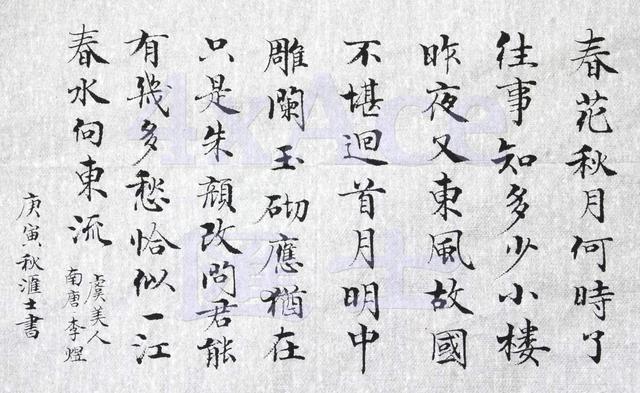 春花秋月何時了
往事知多少小樓
昨夜又東風故國
不堪迴首月明中
雕闌玉砌應猶在
只是朱顏改問君能
有幾多愁恰似一江
春水向東流
虞美人
南唐李煜
庚寅秋滙士書
4kAce